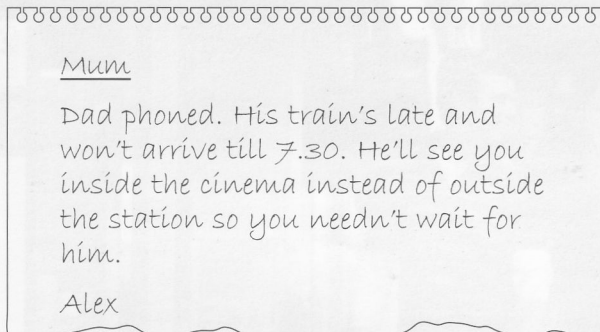 Mum
Dad phoned. His train's late and
won't arrive till 7.30. He'll see you
inside the cinema instead of outside
the station so you needn't wait for
him.
Alex